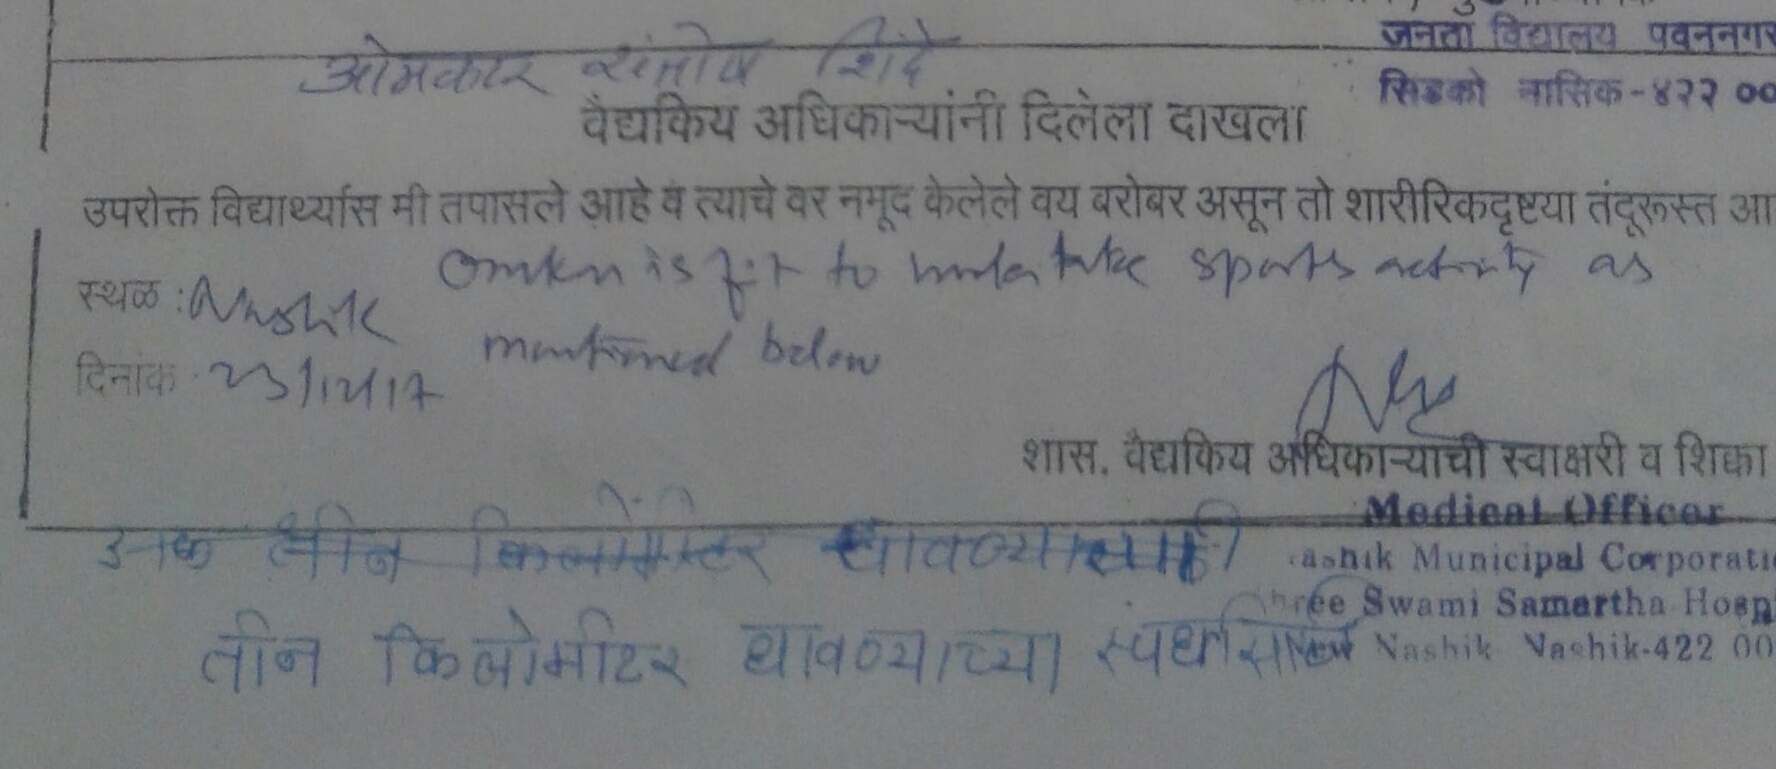 जनता विद्यालय पवननगर
ओमकार संतोष शिंदे
सिडको नासिक-४२२ ००
वैद्यकिय अधिकाऱ्यांनी दिलेला दाखला
उपरोक्त विद्यार्थ्यास मी तपासले आहे व त्याचे वर नमूद केलेले वय बरोबर असून तो शारीरिकदृष्टया तंदूरूस्त आ
Omkar is fit to undertake sports activity as
स्थळ : Nashik
mentioned below
दिनांक 23/12/17
शास. वैद्यकिय अधिकाऱ्याची स्वाक्षरी व शिक्का
Medical Officer
तीन किलोमीटर धावण्यासाठी
ashik Municipal Corporati
hree Swami Samartha Hosp
New Nashik Nashik-422 00
तीन किलोमीटर धावण्याच्या स्पर्धेसाठी